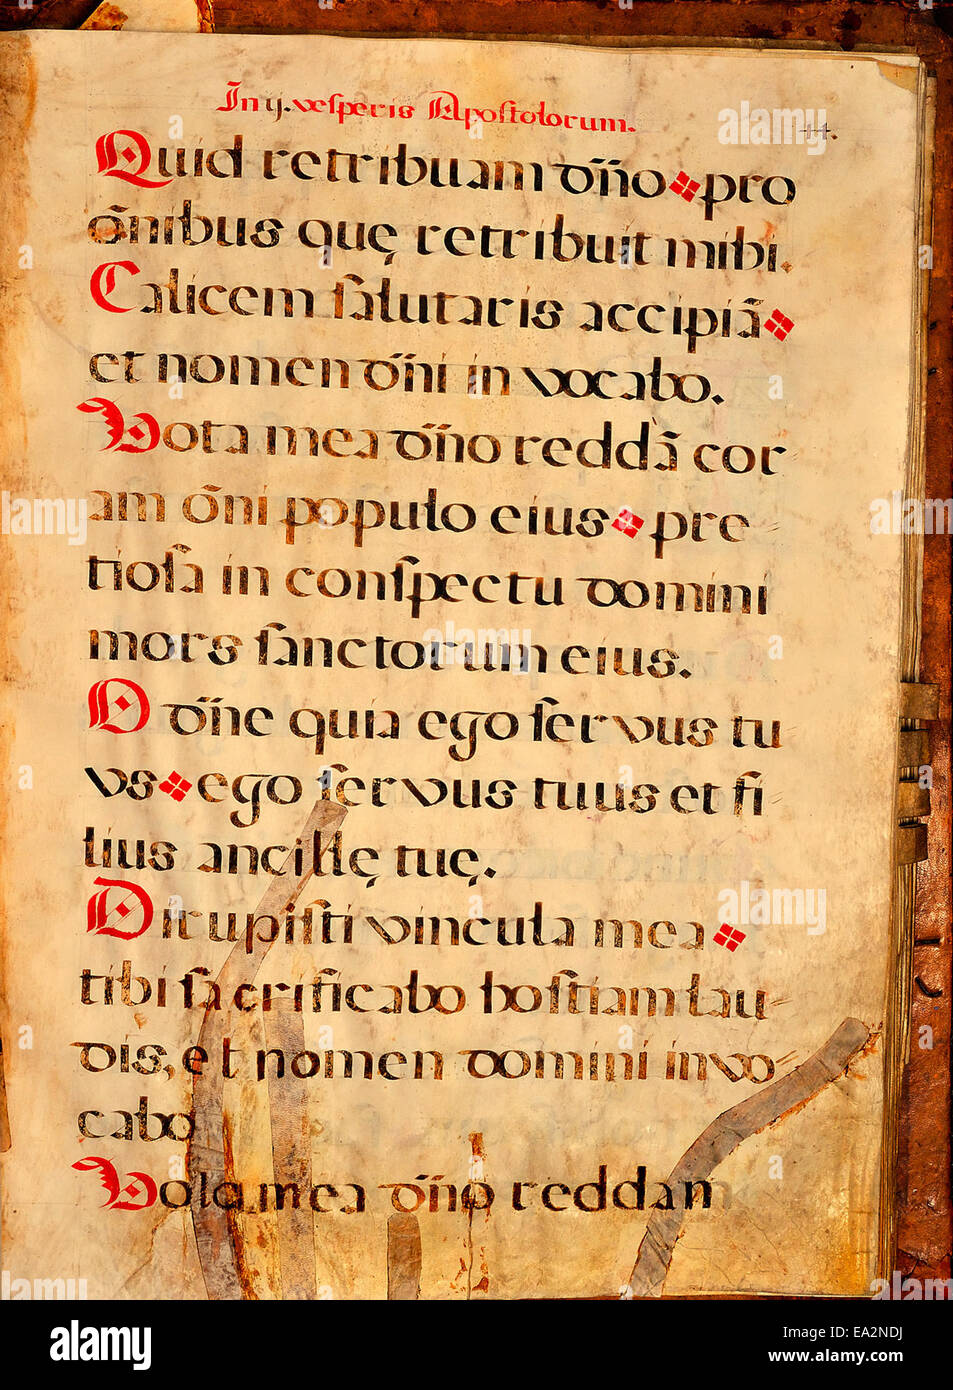 In ij. vesperis Apostolorum.
44.
Quid retribuam dño pro
õnibus quę retribuit mihi.
Calicem salutaris accipiã
et nomen dñi invocabo.
Vota mea dño reddã cor
am õni populo eius pre-
tiosa in conspectu domini
mors sanctorum eius.
O dñe quia ego servus tu
us ego servus tuus et fi
lius ancillę tuę.
Dirupisti vincula mea
tibi sacrificabo hostiam lau-
dis, et nomen domini invo-
cabo
Vota mea dño reddam
alamy
Image ID: EA2NDJ
www.alamy.com